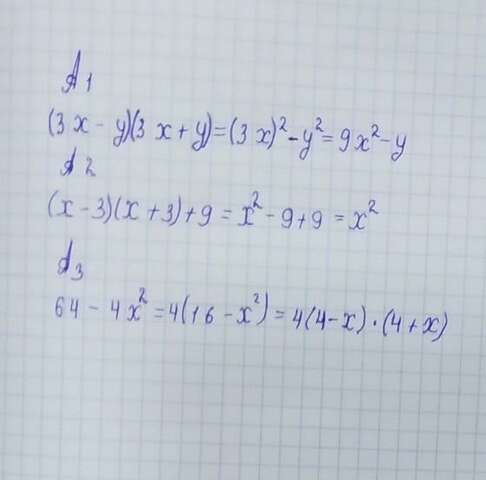 A1
(3x - y)(3x + y) = (3x)² - y² = 9x² - y
A2
(x - 3)(x + 3) + 9 = x² - 9 + 9 = x²
A3
64 - 4x² = 4(16 - x²) = 4(4 - x) · (4 + x)